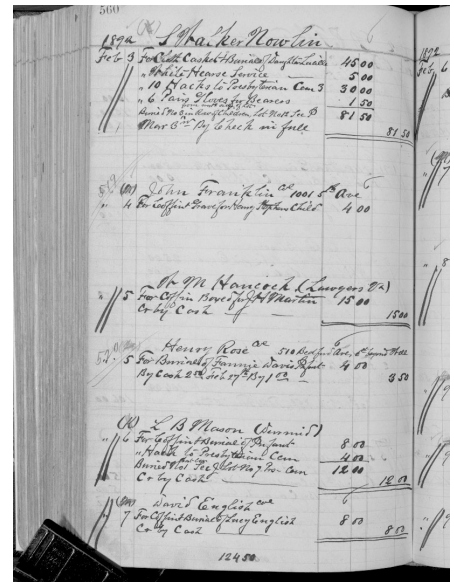 560
(K)
1892 S Walker Nowlin
Feb 3 For Cloth Casket & Burial of Daughter Lucille 45 00
" White Hearse Service 5 00
" 10 Hacks to Presbyterian Cem 3 30 00
" 6 Pairs Gloves for Bearers 1 50
Buried No 6 in Row of Children Lot No 58 Sec P 81 50
Mar 3rd By Check in full 81 50
(M) John Franklin col 1001 5th Ave
" 4 For Coffin & Grave for Henry Stephens Child 4 00
W M Hancock (Lawyers Va)
" 5 For Coffin Boxed for J H Martin 15 00
Cr by Cash 15 00
Henry Rose col 510 Bedford Ave,
5 For Burial of Fannie Davis Infant 4 00
By Cash 2 50 Feb 27th By 1 00 3 50
(K) L B Mason (Dunnid)
" 6 For Coffin & Burial of Infant 8 00
" Hack to Presbyterian Cem 4 00
Buried Lot No 7 Pres Cem 12 00
Cr by Cash 12 00
(M) David English col
7 For Coffin & Burial of Lucy English 8 00
Cr by Cash 8 00
124 50
1892
Feb